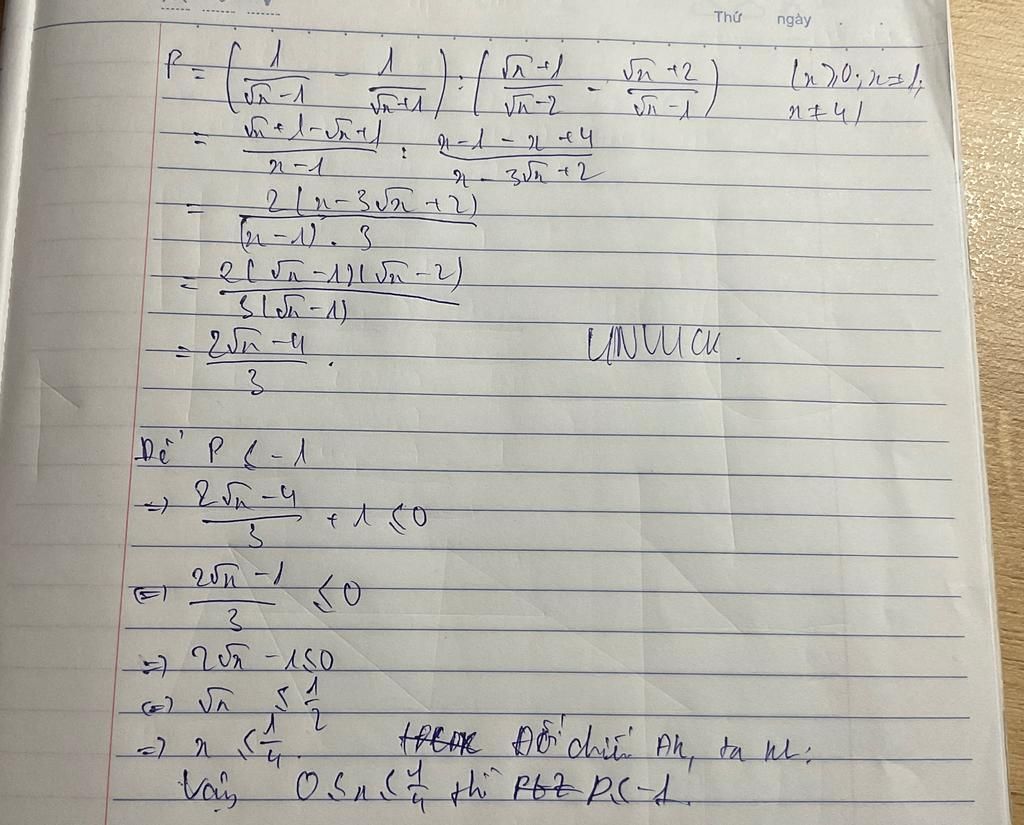 Thứ ngày
P = (1/(√x-1) - 1/(√x+1)) : ((√x+1)/(√x-2) - (√x+2)/(√x-1)) (x≥0; x≠1;
x≠4)
= (√x+1-√x+1)/(x-1) : (x-1-x+4)/(x-3√x+2)
= 2(x-3√x+2)/((x-1).3)
= 2(√x-1)(√x-2)/(3(√x-1))
= (2√x-4)/3 . UNLUCK.
Để P ≤ -1
=> (2√x-4)/3 + 1 ≤ 0
<=> (2√x-1)/3 ≤ 0
=> 2√x-1≤0
<=> √x ≤ 1/2
=> x ≤ 1/4. Đối chiếu ĐK, ta kl:
Vậy 0≤x≤1/4 thì P≤-1